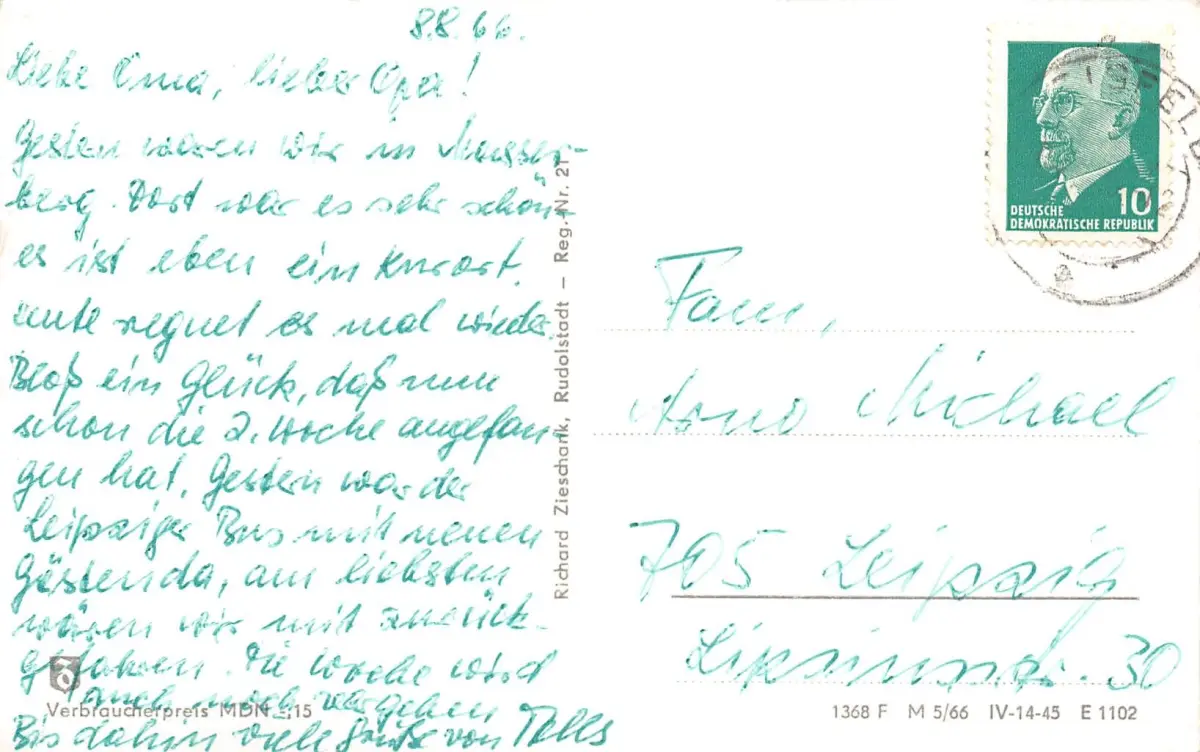 8.8.66.
Liebe Oma, lieber Opa!
Gestern waren wir in Masser-
berg. Dort war es sehr schön,
es ist eben ein Kurort.
Heute regnet es mal wieder.
Bloß ein Glück, daß nun
schon die 2. Woche angefan
gen hat. Gestern war der
Leipziger Bus mit neuen
Gästen da, am liebsten
wären wir mit zurück-
gefahren. Die Woche wird
auch noch vergehen
Bis dahin viele Grüße von
Verbraucherpreis MDN -,15
Richard Zieschank, Rudolstadt — Reg.-Nr. 21
10
DEUTSCHE
DEMOKRATISCHE REPUBLIK
Fam.
Arno Michael
705 Leipzig
30
1368 F M 5/66 IV-14-45 E 1102